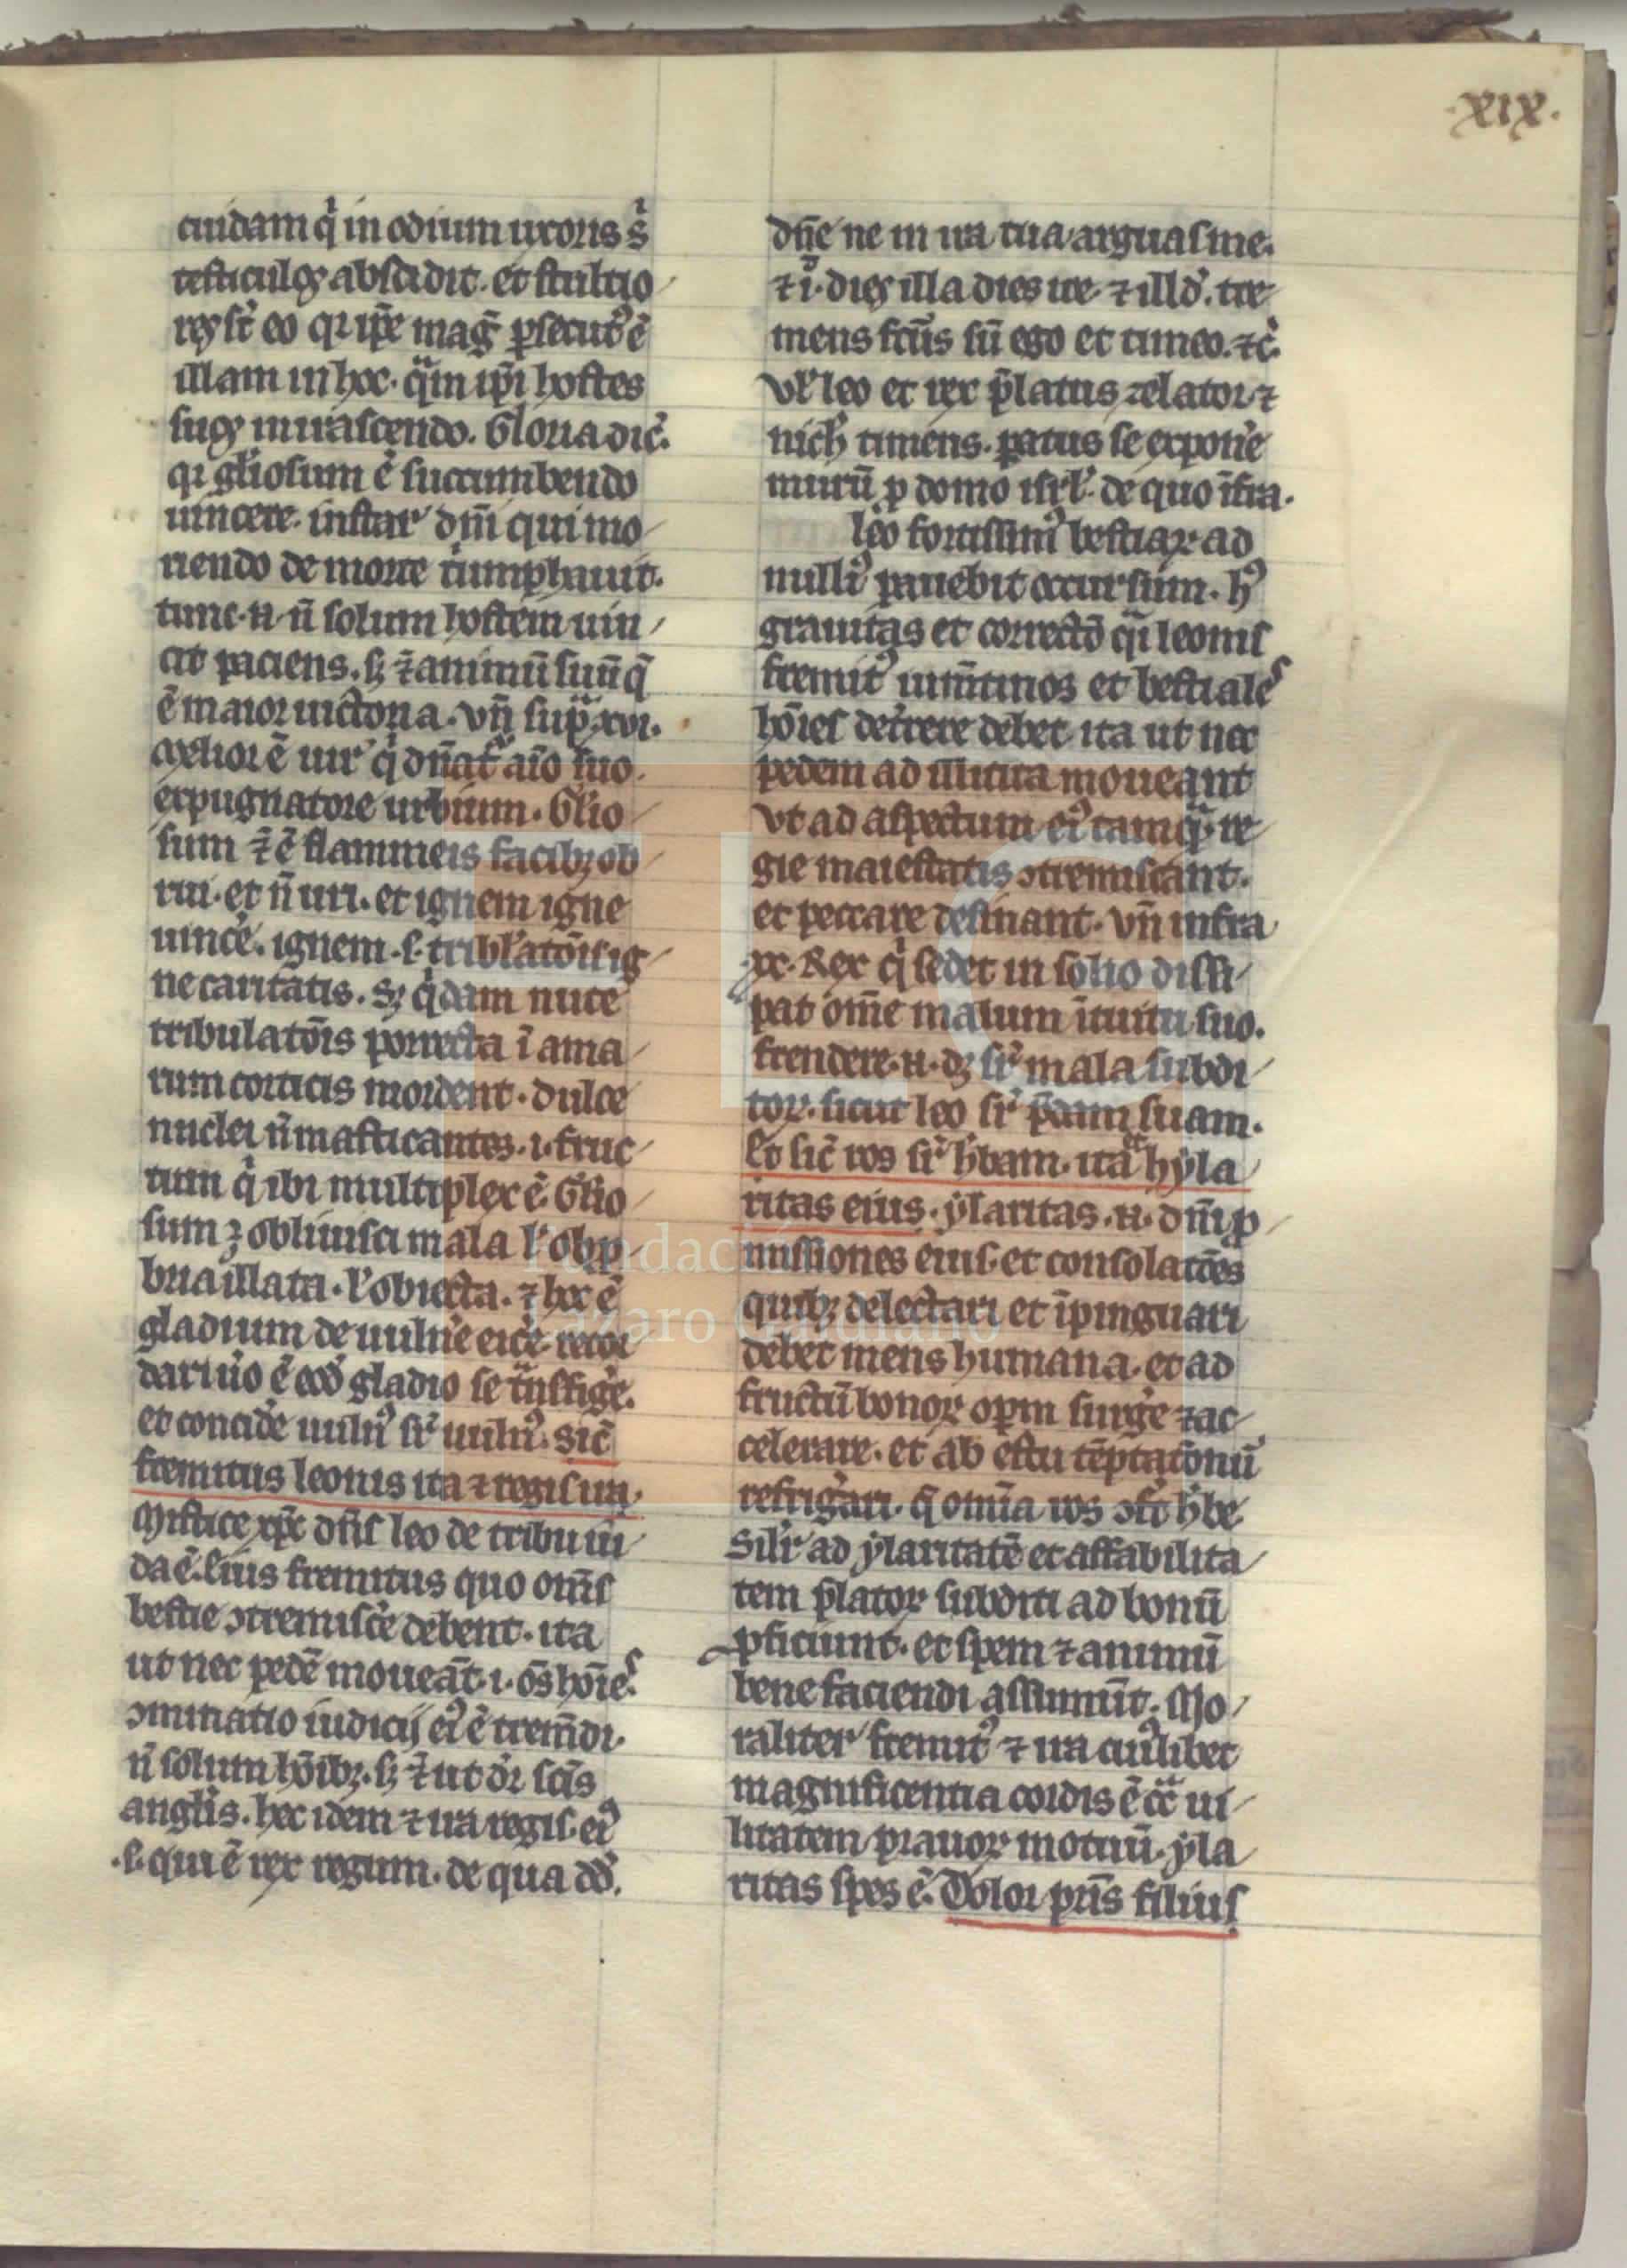 ·xix·
cuidam q̇ in odium uxoris s̾
testiculos abscidit. et stultio
res st̾ eo qr ip̄e mag̾ ꝑsecut᷒ ē
illam in hoc. q̄m ip̄i hostes
suos in irascendo. Gloria dic̾.
qr gl̾iosum ē succumbendo
uincere. instar dn̄i qui mo
riendo de morte triumphauit.
tunc .n. n̄ solum hostem uin
cit paciens. sꝫ ⁊ animū suū q̄
ē maior uictoria. Vn̄ sup̄. xvi.
Melior ē uir q̇ dn̄at᷒ aīo suo.
expugnatore urbium. Gl̾io
sum ⁊ ē flammeis facibꝫ ob
rui. et n̄ uri. et ignem igne
uince᷒. ignem .s. tribl̾atōis ig
ne caritatis. Sꝫ q̇dam nuce
tribulatōis porrecta ī ama
rum corticis mordent. dulce
nuclei n̄ masticantes. i. fruc
tum q̇ ibi multiplex ē. Gl̾io
sum ꝫ obliuisci mala l̾ obp
bria illata. l̾ obiecta. ⁊ hoc ē
gladium de uuln̾e eice᷒. recor
dari u̾o ē eod̾ gladio se t̾nsfige᷒.
et concide᷒ uuln᷒ sr̾ uuln᷒. Sic̄
fremitus leonis ita ⁊ regis ira.
Mistice xp̄c dn̄s leo de tribu iu
da ē. Eius fremitus quo om̄s
bestie ɔtremisce᷒ debent. ita
ut nec pedē moueāt. i. ōs hoīes
ɔminatio iudicij ei᷒ ē trem̄di.
n̄ solum hoībꝫ. sꝫ ⁊ ut dr̾ scīs
angl̾is. hec idem ⁊ ira regis. ei᷒
.s. qui ē rex regum. de qua dd̾.
dn̄e ne in ira tua arguas me.
⁊ i̊. dies illa dies ire. ⁊ illd̾. tre
mens fcūs sū ego et timeo. ⁊c̾.
Vl̾ leo et rex p̄latus zelator ⁊
nich̾ timens. paratus se expone᷒
murū ꝓ domo isr̾l. de quo īfra.
leo fortissim᷒ bestiaꝝ ad
nulli᷒ pauebit occursum. h᷒
grauitas et correctō q̄i leonis
fremit᷒ iumentinos et bestiales
hoīes det̾rere debet ita ut nec
pedem ad illicita moueant
Vt ad aspectum ei᷒ tamq̄. re
gie maiestatis ɔtremiscant.
et peccare desinant. Vn̄ infra
xx. Rex q̇ sedet in solio dissi
pat om̄e malum ītuitu suo.
frendere .n. dꝫ sr̾ mala subdi
toꝝ. sicut leo sr̾ p̄dam suam.
Et sic̄ ros sr̾ h̾bam. ita et hyla
ritas eius. ylaritas .n. dn̄i ꝓ
missiones eius. et consolatōes
quibꝫ delectari et īpinguari
debet mens humana. et ad
fructū bonoꝝ oꝑm surge᷒ ⁊ ac
celerare. et ab estu tēptatōnū
refrigerari. q̄ omīa ros ɔfert h̾be.
Silr̾ ad ylaritatē et affabilita
tem p̄latoꝝ subditi ad bonū
ꝓficiunt. et spem ⁊ animū
bene faciendi assumūt. Mo
raliter fremit᷒ ⁊ ira cui᷒libet
magnificentia cordis ē ɔ̾ ui
litatem prauoꝝ motuū. yla
ritas spes ē. Dolor pr̄is filius